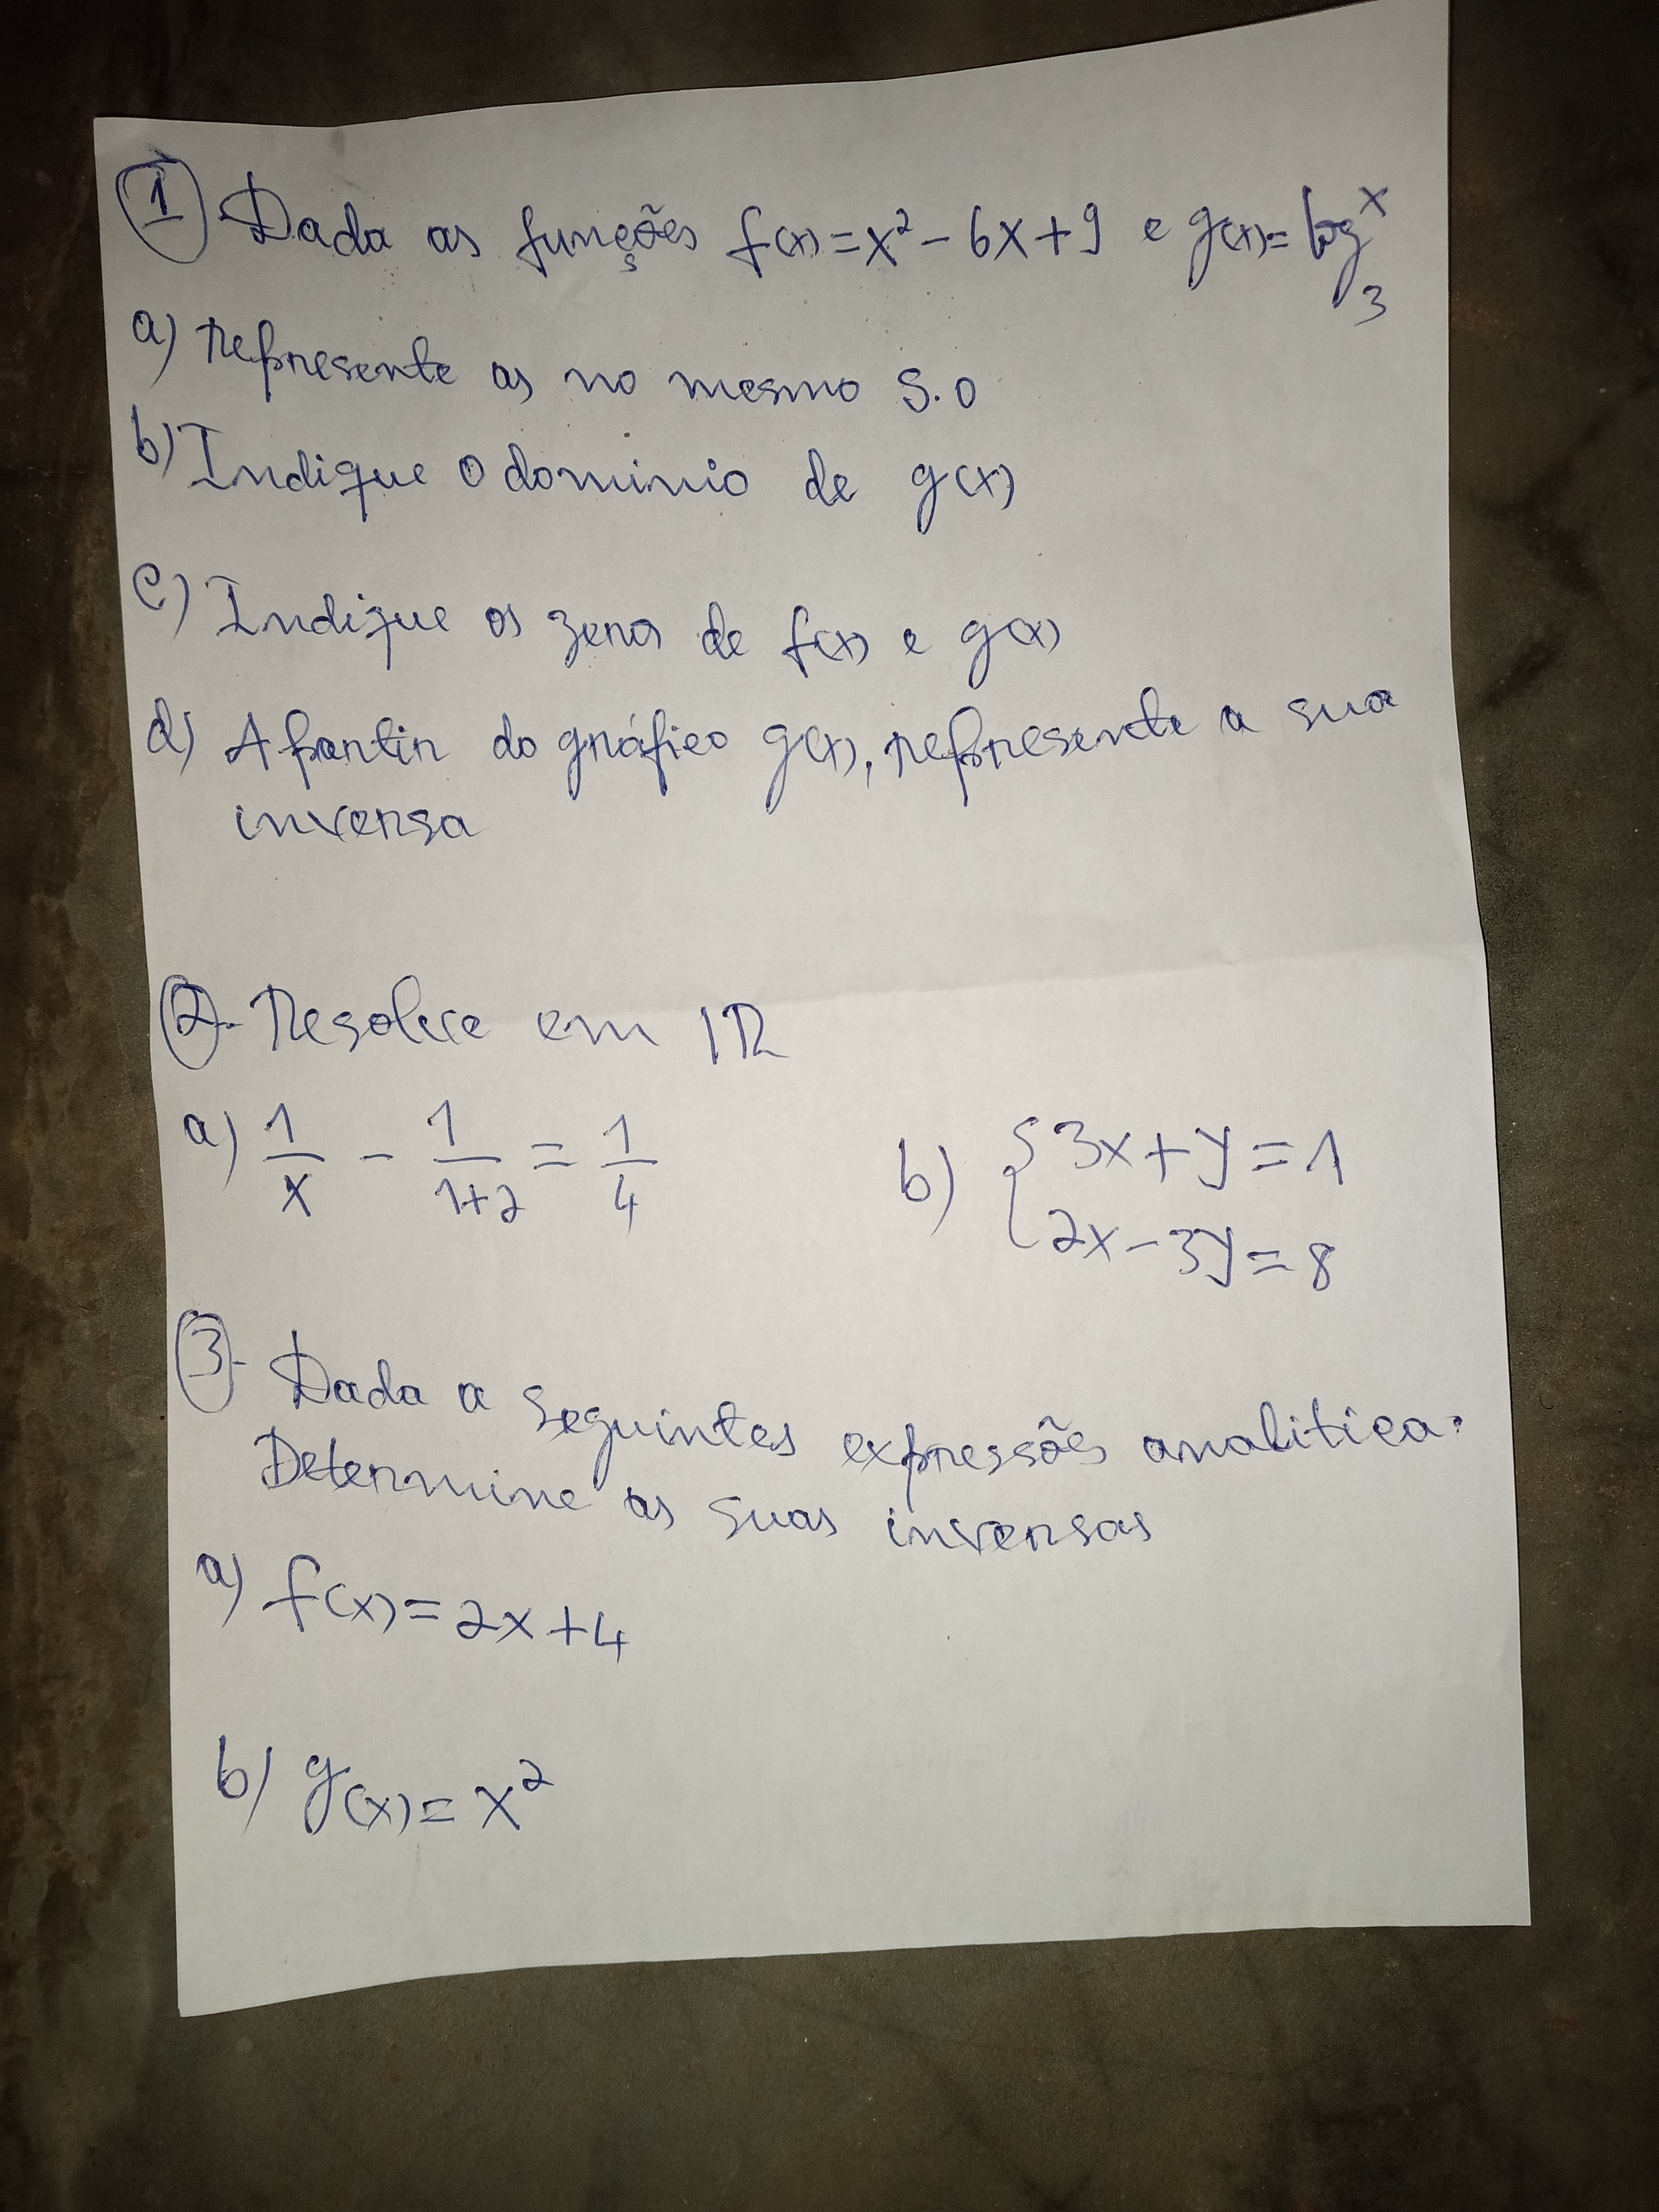 1 Dada as funções f(x)=x²-6x+9 e g(x)=log₃ˣ
a) represente as no mesmo S.O
b) Indique o dominio de g(x)
c) Indique os zeros de f(x) e g(x)
d) A partir do gráfico g(x), represente a sua
inversa
2. Resolve em IR
a) 1/x - 1/1+2 = 1/4 b) {3x+y=1
2x-3y=8
3- Dada a seguintes expressões analitica.
Determine as suas inversas
a) f(x)=2x+4
b) g(x)=x²